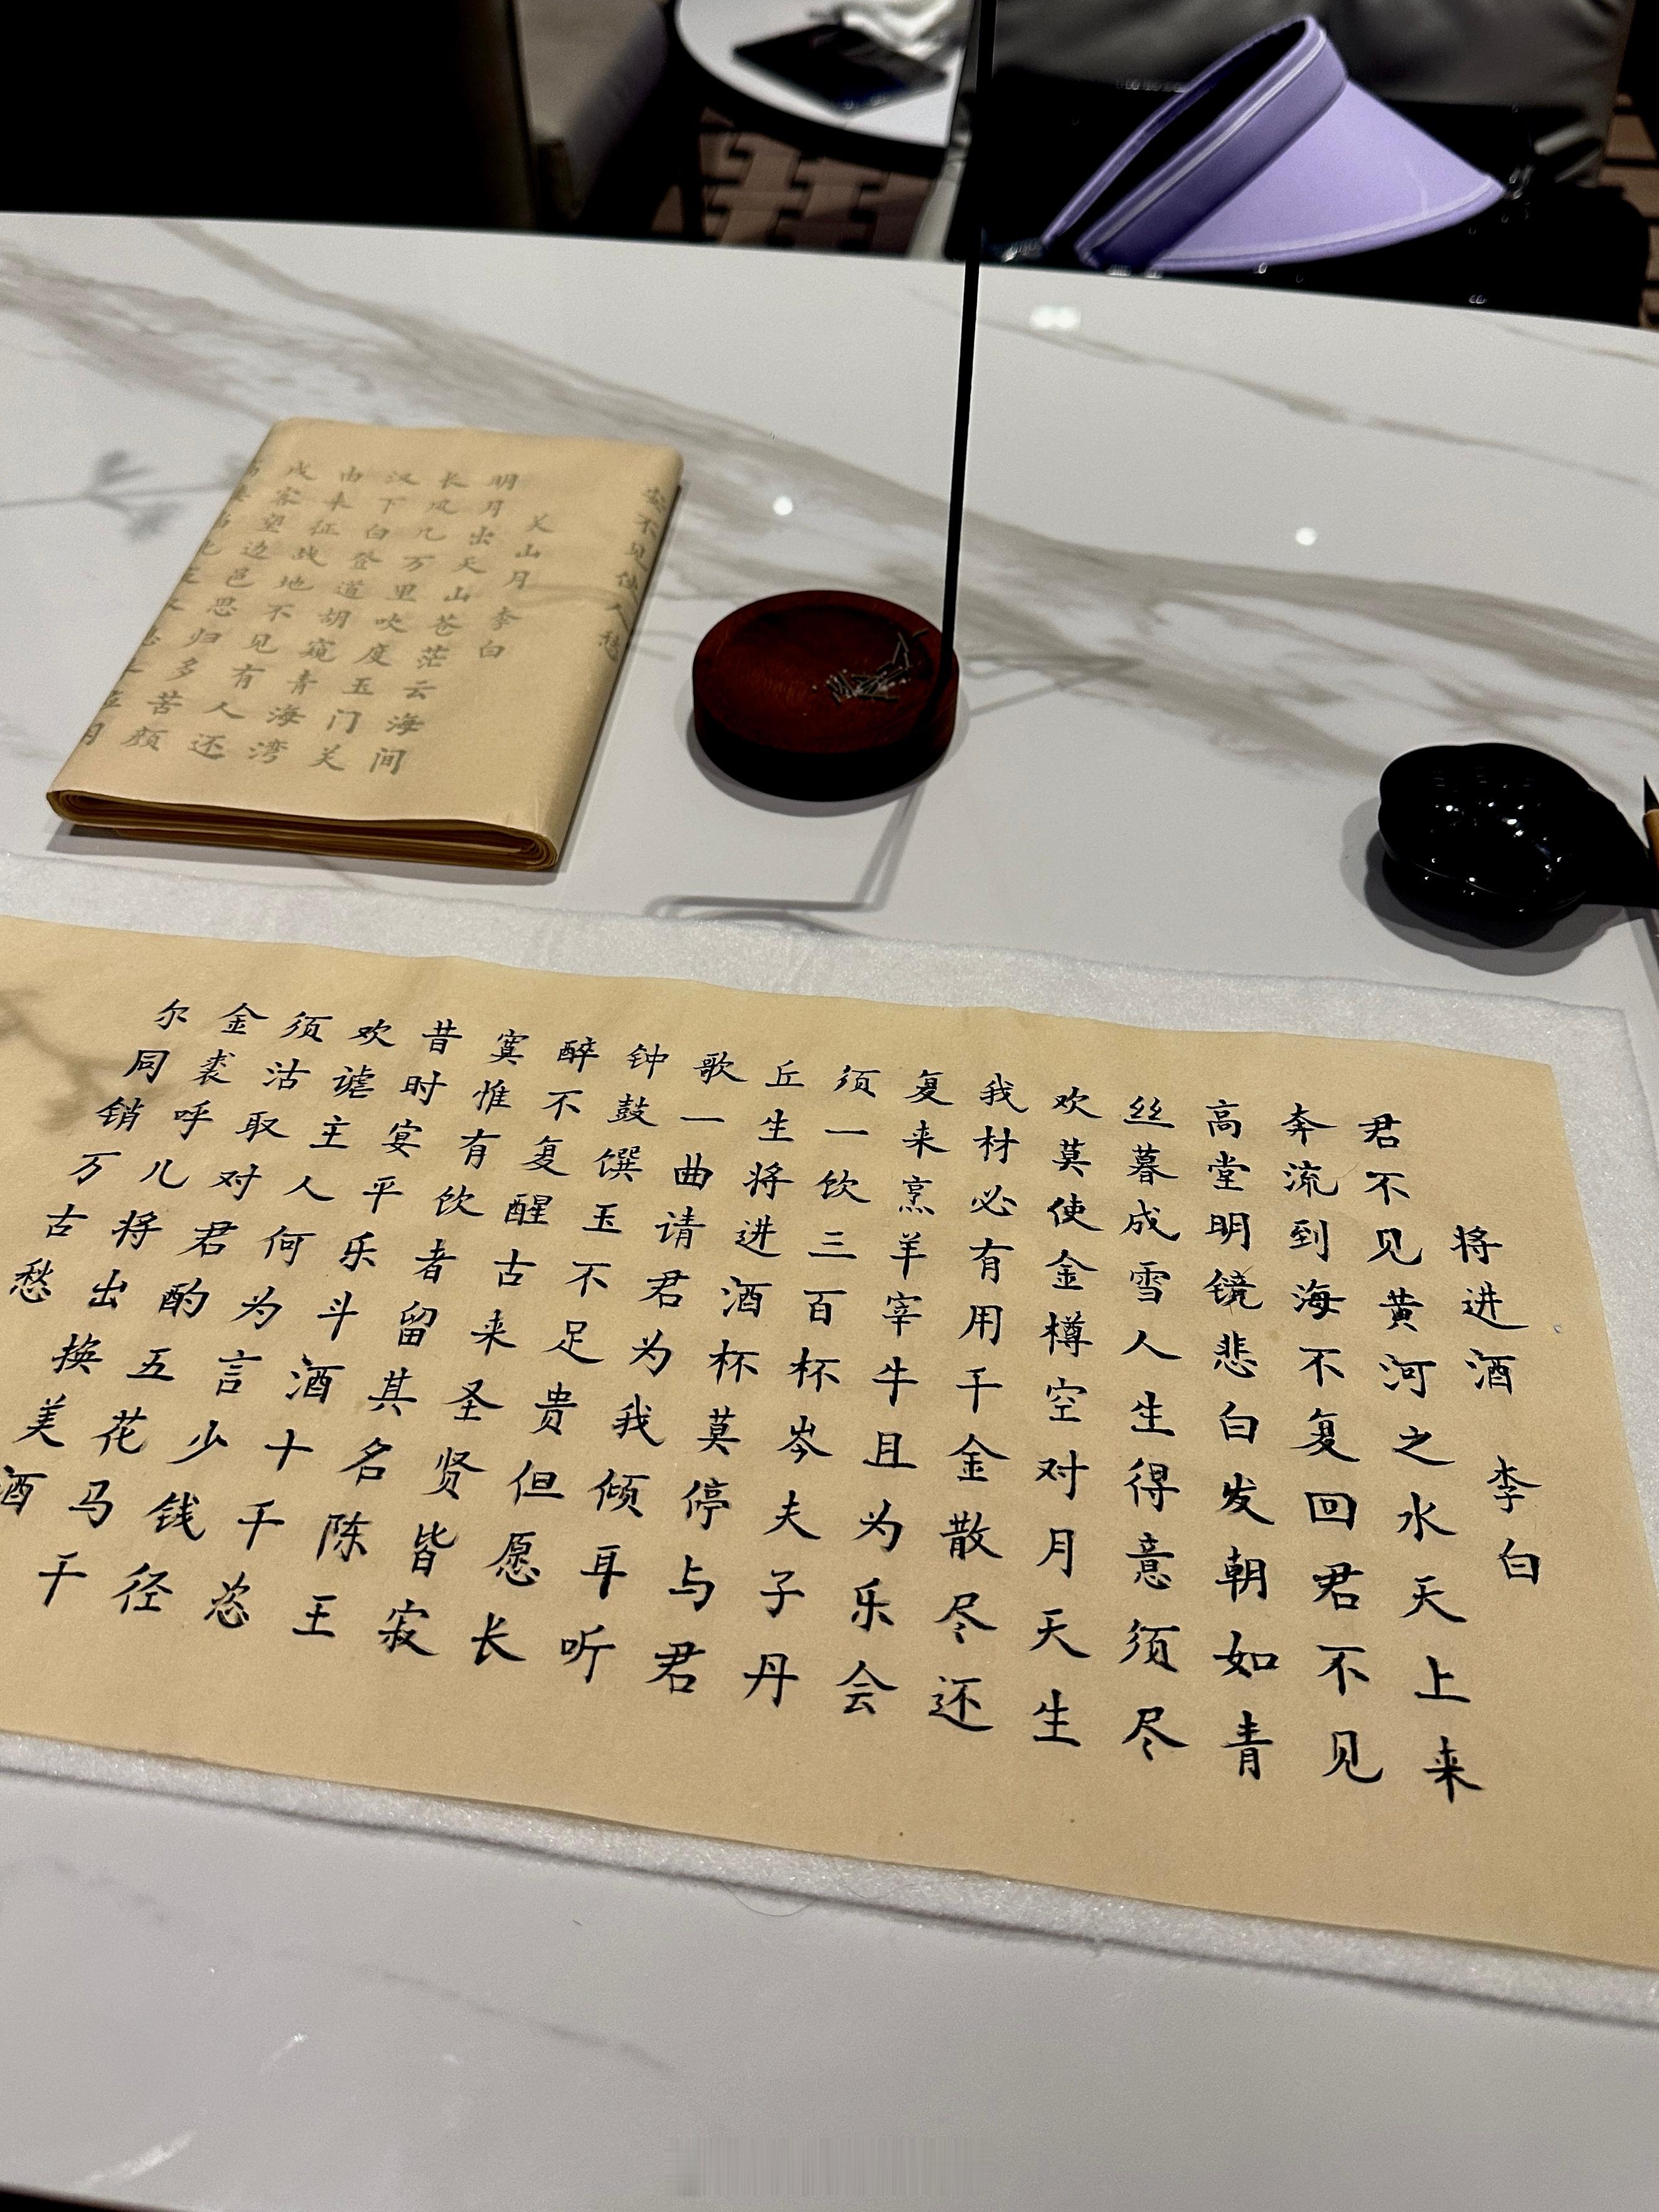 安不见使人愁
关山月李白
明月出天山苍茫云海间
长风几万里吹度玉门关
汉下白登道胡窥青海湾
由来征战地不见有人还
戍客望边邑思归多苦颜
将进酒 李白
君不见黄河之水天上来
奔流到海不复回君不见
高堂明镜悲白发朝如青
丝暮成雪人生得意须尽
欢莫使金樽空对月天生
我材必有用千金散尽还
复来烹羊宰牛且为乐会
须一饮三百杯岑夫子丹
丘生将进酒杯莫停与君
歌一曲请君为我倾耳听
钟鼓馔玉不足贵但愿长
醉不复醒古来圣贤皆寂
寞惟有饮者留其名陈王
昔时宴平乐斗酒十千恣
欢谑主人何为言少钱径
须沽取对君酌五花马千
金裘呼儿将出换美酒
尔同销万古愁